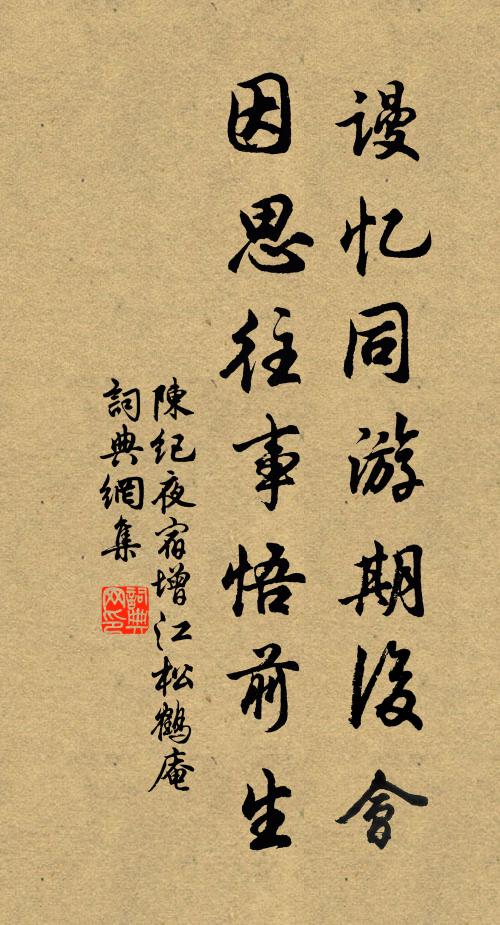 谩忆同游期後會
因思往事悟前生
陳纪夜宿增江松鶴庵
詞典網集
詞典
网印